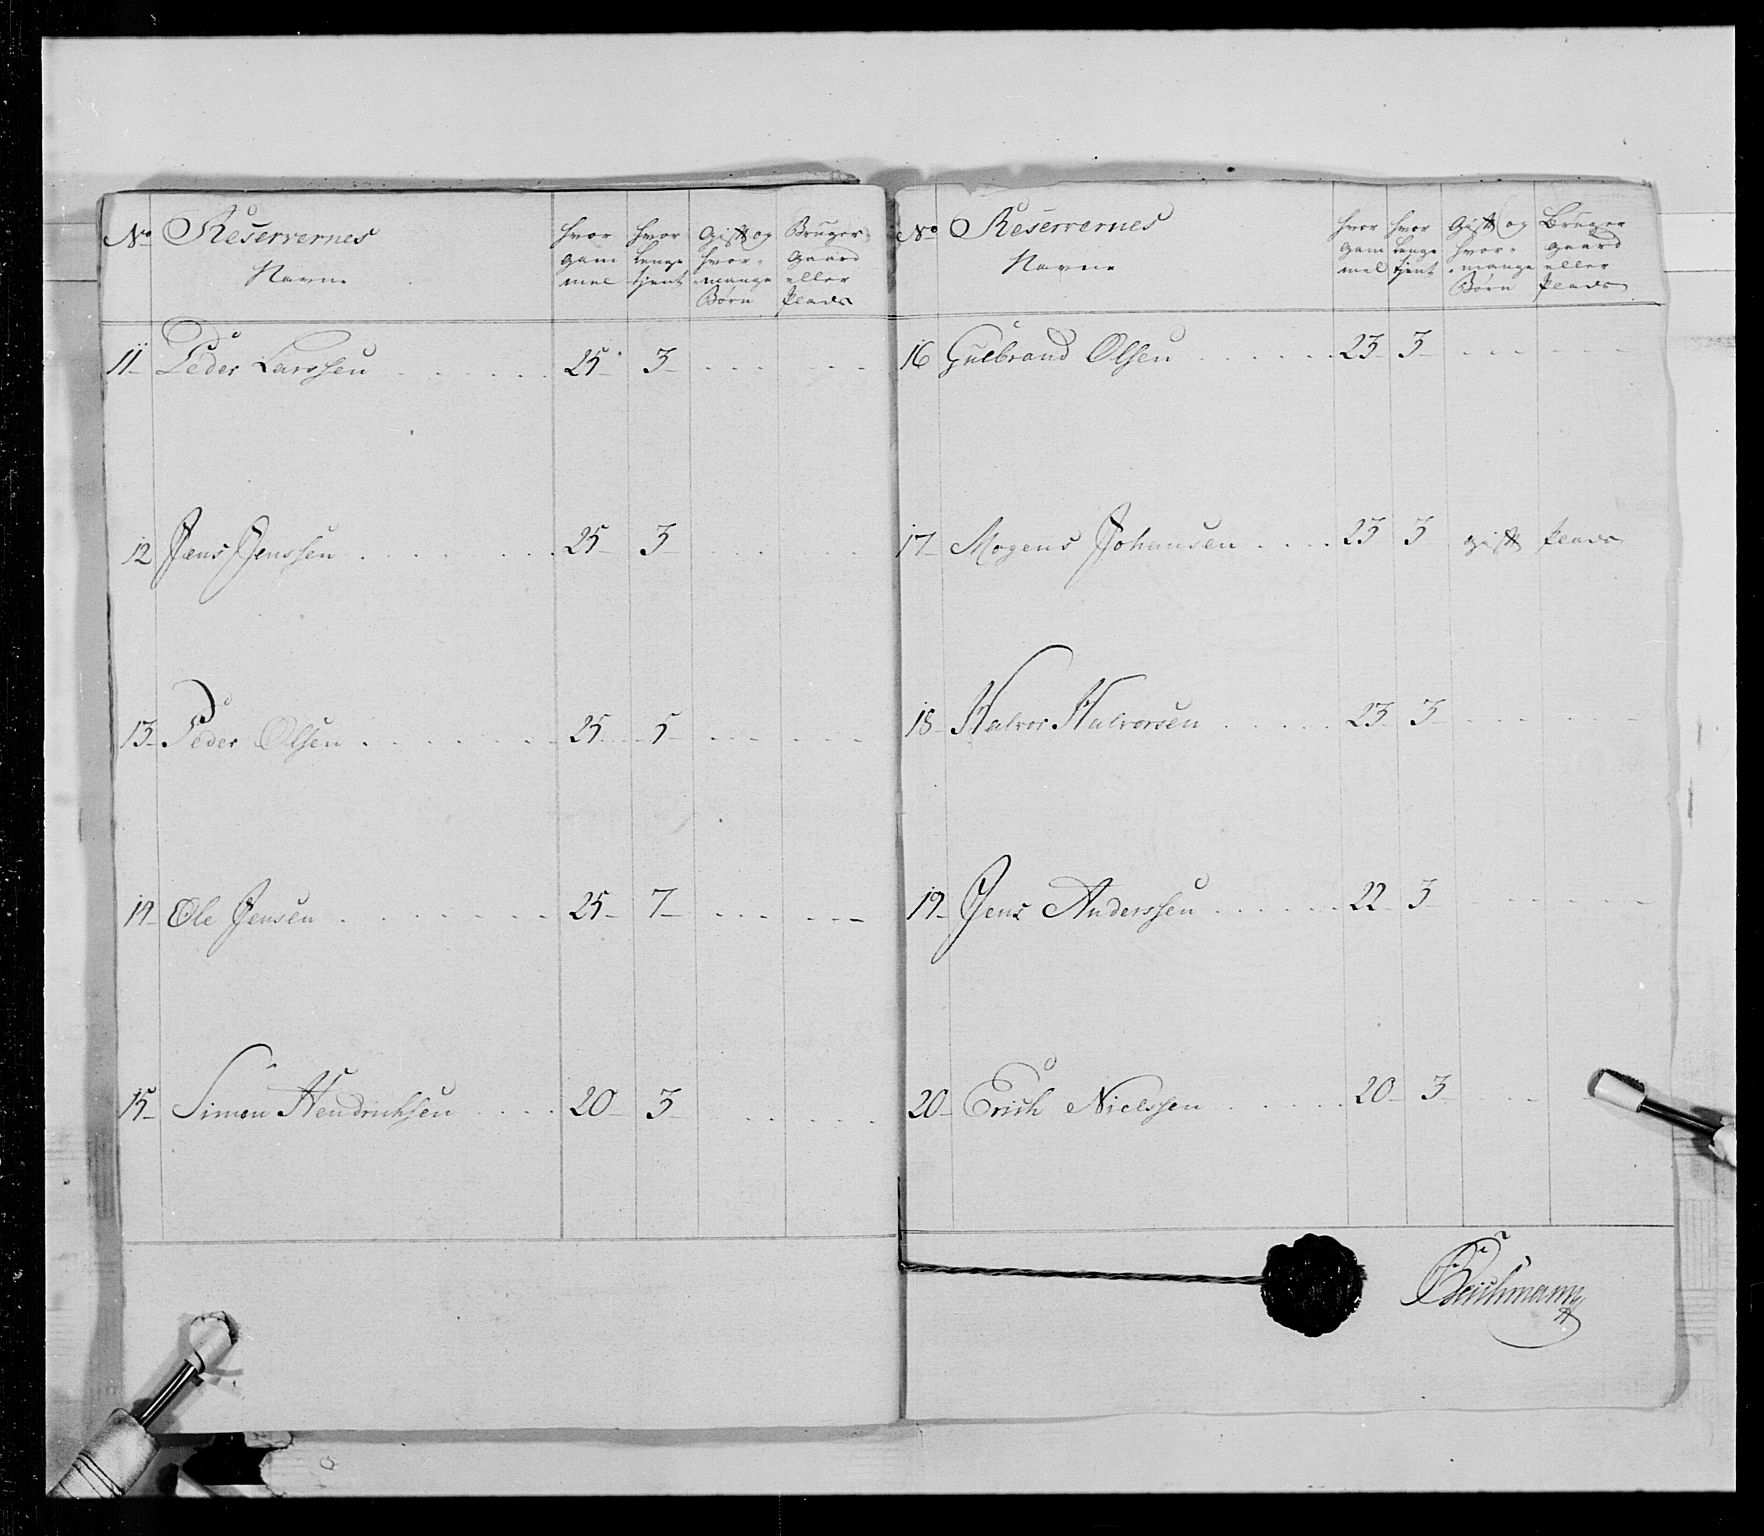 No Reservernes Navne hvor gam mel hvor lenge tjent Gift og hvor- mange Børn Bruger Gaard eller Plads
11 Peder Larssen 25 3
12 Jens Jenssen 25 3
13 Peder Olsen 25 5
14 Ole Jensen 25 7
15 Simen Hendrichsen 20 3
No Reservernes Navne hvor gam mel hvor lenge tjent Gift og hvor- mange Børn Bruger gaard eller Plads
16 Gulbrand Olsen 23 3
17 Mogens Johansen 23 3 gift Plads
18 Halvor Halvorsen 23 3
19 Jens Anderssen 22 3
20 Erich Nielssen 20 3